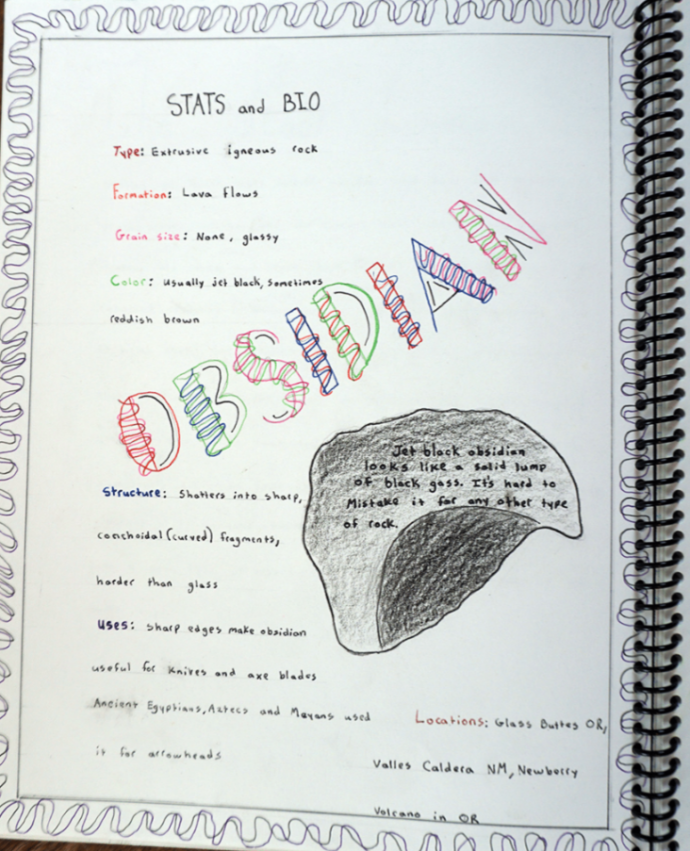 STATS and BIO
Type: Extrusive igneous rock
Formation: Lava flows
Grain size: None, glassy
Color: usually jet black, sometimes
reddish brown
OBSIDIAN
Jet black obsidian
looks like a solid lump
of black gass. It's hard to
Mistake it for any other type
of rock.
Structure: Shatters into sharp,
conchoidal (curved) fragments,
harder than glass
Uses: Sharp edges make obsidian
useful for knives and axe blades
Ancient Egyptians, Aztecs and Mayans used
it for arrowheads
Locations: Glass Buttes OR,
Valles Caldera NM, Newberry
Volcano in OR